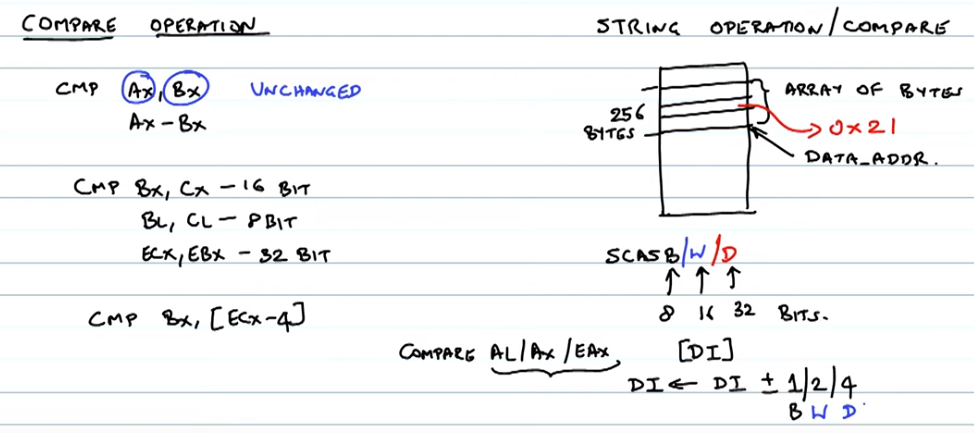 COMPARE OPERATION
CMP AX, BX UNCHANGED
AX - BX
CMP BX, CX - 16 BIT
BL, CL - 8 BIT
ECX, EBX - 32 BIT
CMP BX, [ECX-4]
STRING OPERATION/COMPARE
ARRAY OF BYTES
256
BYTES
0x21
DATA_ADDR.
SCASB/W/D
8 16 32 BITS.
COMPARE AL/AX/EAX, [DI]
DI ← DI ± 1/2/4
B W D